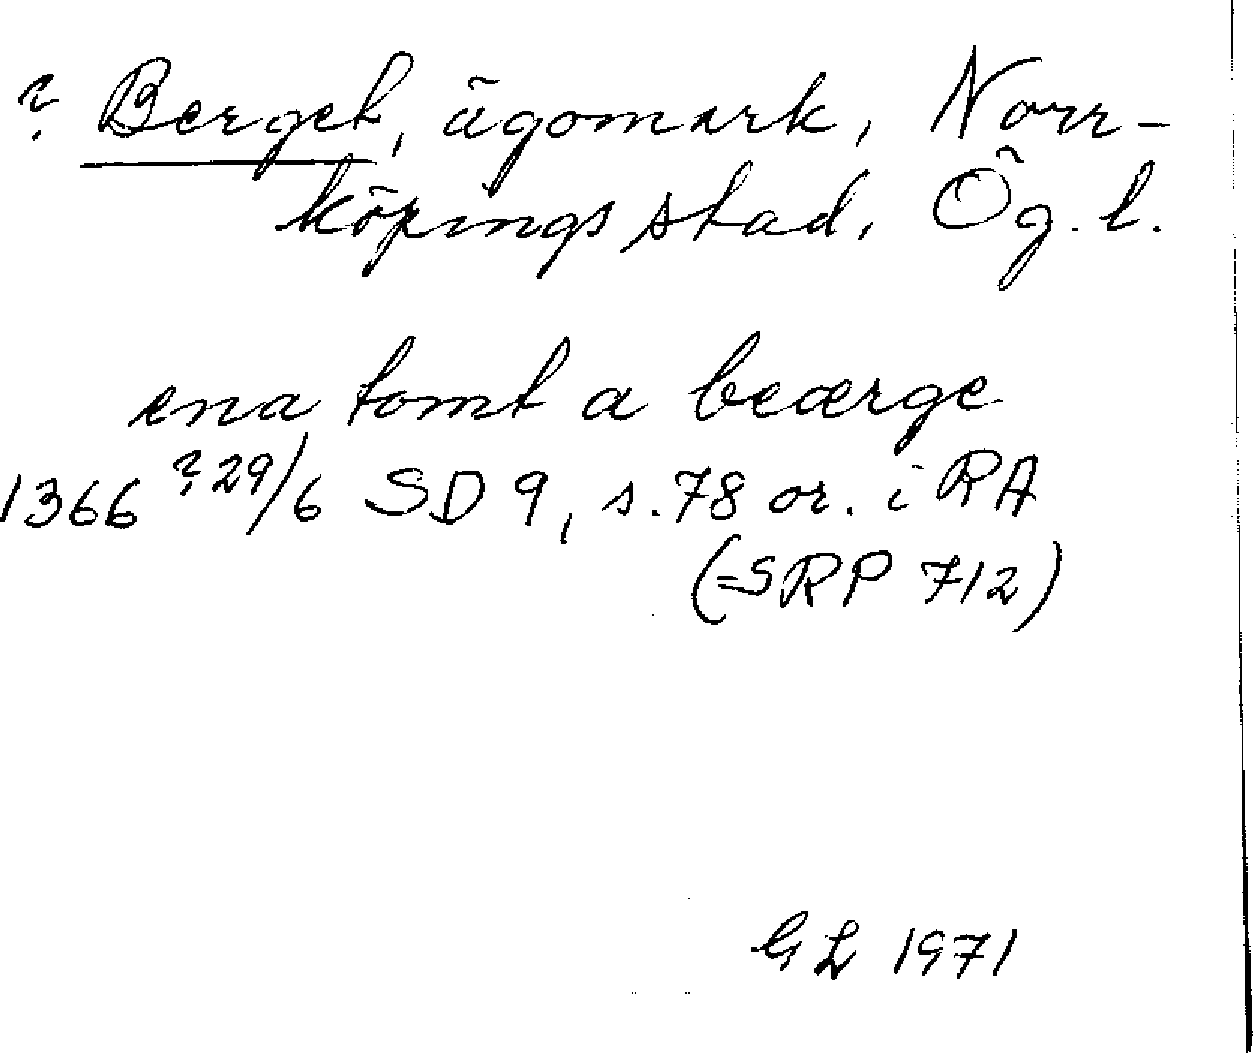 ? Berget, ägomark, Norr-
köpings stad, Ög. l.
ena tomt a beærge
1366 ? 29/6 SD 9, s. 78 or. i RA
(=SRP 712)
GL 1971